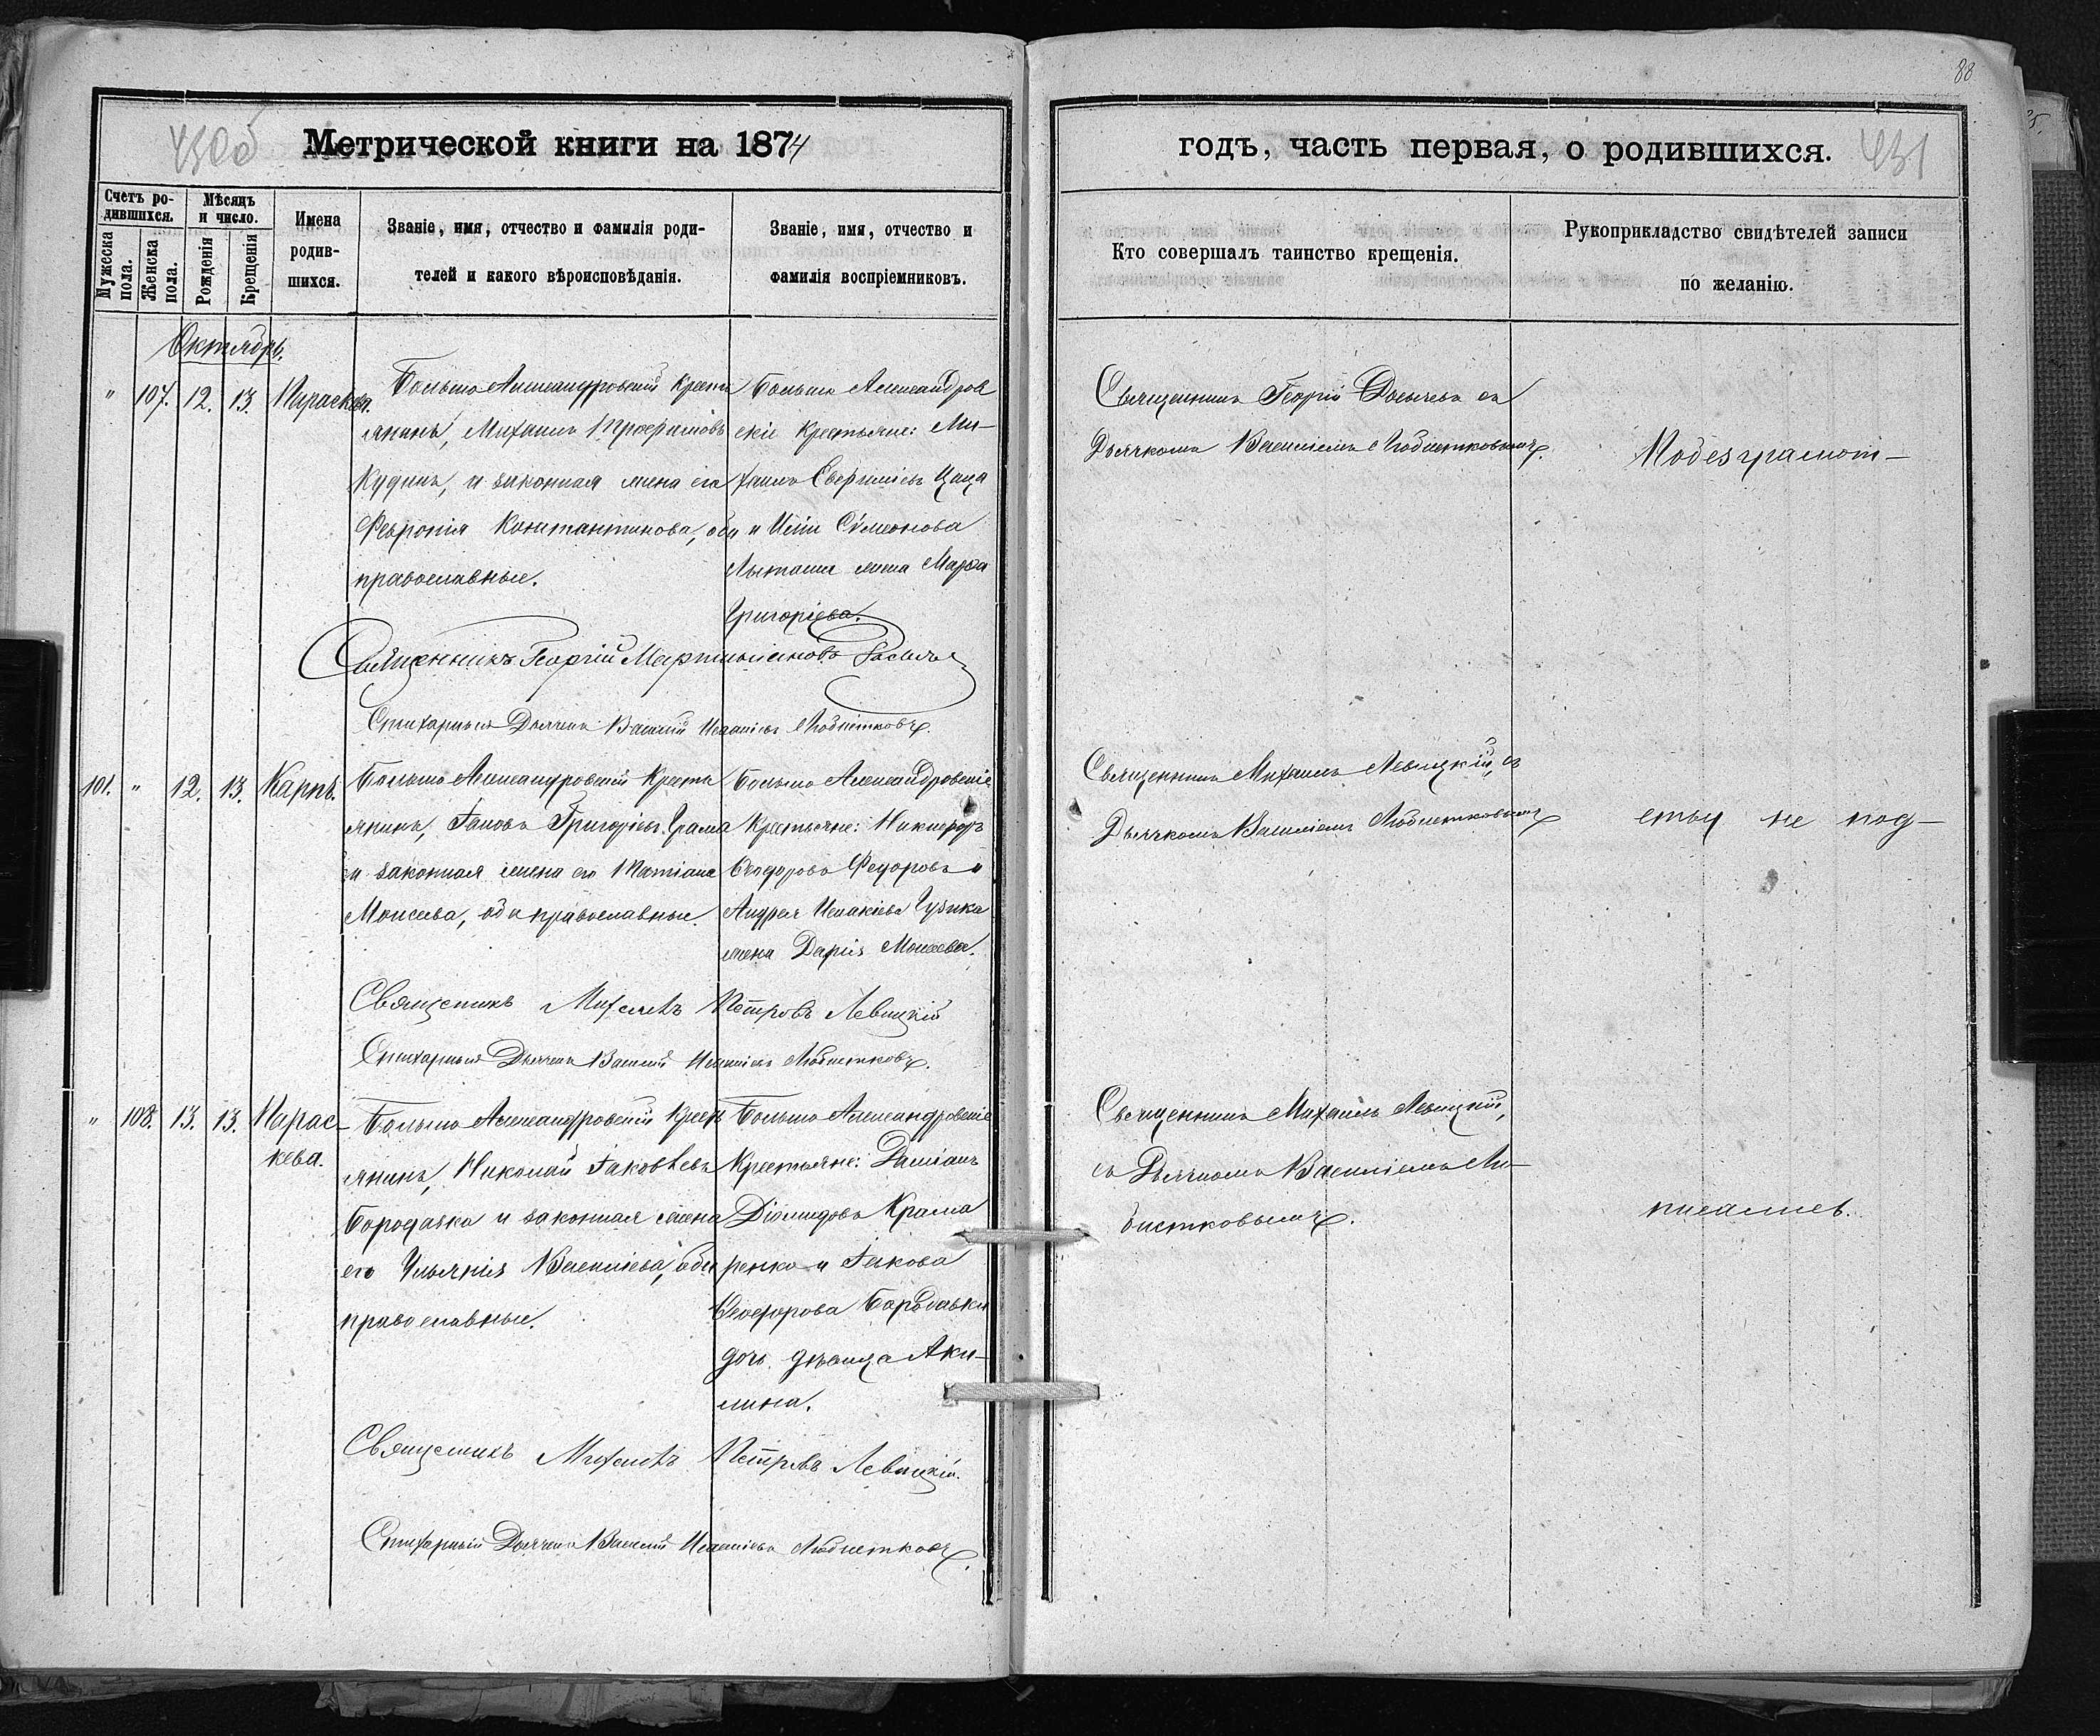 88
430об
Метрической книги на 1874
годъ, часть первая, о родившихся.
431
Счетъ родившихся.
Мужеска пола.
Женска пола.
Мѣсяцъ и число.
Рожденія
Крещенія
Имена
родив-
шихся.
Званіе, имя, отчество и фамилія роди-
телей и какого вѣроисповѣданія.
Званіе, имя, отчество и
фамилія воспріемниковъ.
Кто совершалъ таинство крещенія.
Рукоприкладство свидѣтелей записи
по желанію.
Октябрь.
" 107. 12. 13. Параскева.
Больше Александровскій Кресть
янинъ, Михаилъ Трофимовъ
Кудинъ, и законная жена его
Феѵронія Константинова, оба
православные.
Больше Александров
скіе Крестьяне:
и
жена Марѳа
Григоріева.
Священникъ Георгій
Дьячкомъ Василіемъ Любистковымъ.
По безграмот-
Священникъ Георгій Мартиніановъ
Стихарный Дьячекъ Василій Любистковъ.
101. " 12. 13. Карпъ.
Больше Александровскій Кресть
янинъ, Іаковъ Григоріевъ
и законная жена его Татіана
Моисеева, оба православные.
Больше Александровскіе
Крестьяне: Никифоръ
Ѳеодоровъ Федоровъ и
Андрея Гузика
жена Дарія Моисеева.
Священникъ Михаилъ Левицкій, съ
Дьячкомъ Василіемъ Любистковымъ
ству не под-
Священникъ Михаилъ Петровъ Левицкій
Стихарный Дьячекъ Василій Любистковъ.
" 108. 13. 13. Парас-
кева.
Больше Александровскій Кресть
янинъ, Николай Іаковлевъ
Бородавка и законная жена
его Ульянія Василіева, оба
православные.
Больше Александровскіе
Крестьяне: Даміанъ
Діомидовъ Крама
ренко и Іакова
Ѳеодорова Бородавки
дочь дѣвица Аки-
лина.
Священникъ Михаилъ Левицкій,
съ Дьячкомъ Василіемъ Лю-
бистковымъ.
писались.
Священникъ Михаилъ Петровъ Левицкій.
Стихарный Дьячекъ Василій Любистковъ.